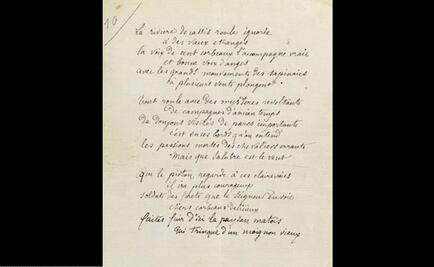 10
La rivière de cassis roule ignorée
à des vaux étranges
la voix de cent corbeaux l'accompagne vraie
et bonne voix d'anges
avec les grands mouvements des sapinaies
où plusieurs vents plongent.
Tout roule avec des mystères révoltants
de campagnes d'ancien temps
De donjons visités de parcs importants
c'est en ces bords qu'on entend
les passions mortes des chevaliers errants
Mais que salubre est le vent
Que le piéton regarde à ces clairevoies
il ira plus courageux
soldats des forêts que le Seigneur envoie
chers corbeaux délicieux
faites fuir d'ici le paysan matois
qui trinque d'un moignon vieux